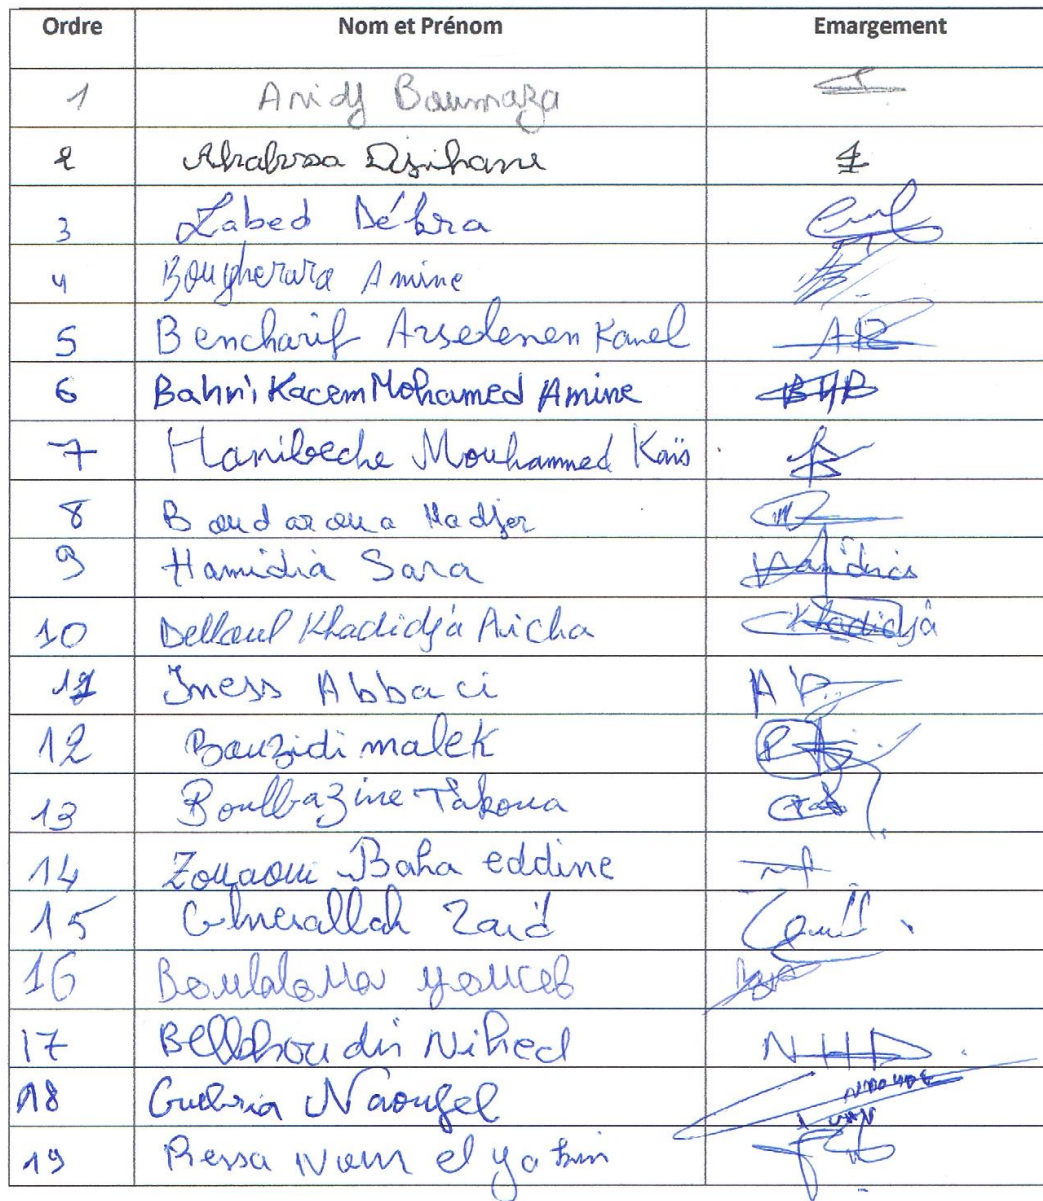 Ordre Nom et Prénom Emargement
1 Anidj Boumaza
2 Djihane
3 Labed Débra
4 Bougherara Amine
5 Bencharif Arselenen Kamel AR
6 Bahri Kacem Mohamed Amine BHR
7 Hanibeche Mouhammed Kaïs
8 Boudaroua Hadjer
9 Hamidia Sara Hamidia
10 Dellaoul Khadidja Aicha Khadidja
11 Iness Abbaci
12 Bouzidi malek
13 Boulbazine Takoua
14 Zouaoui Baha eddine
15 Zaid
16 youcef
17 Nihed NHD
18 Naoufel
19 Ressa Nour el yakin